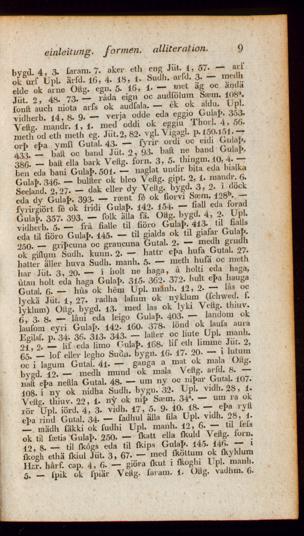 einleitung. formen. alliteration. 9
bygd. 4, 3. saram. 7. aker eth eng Jüt. 1, 57. — arf
ok urf Upl. ärfd. 16, 4. 18, 1. Sudh. arfd. 3. — medh
elde ok arne Ostg. egn. 5. 16, 1. — met äg oc ändä
Jüt. 2, 48. 73. — råda eign oc audsölum Sæm. 108ª.
sonst auch niota arfs ok audsala. — êk ok aldu. Upl.
vidherb. 14, 8. 9. — verja odde eda eggio Gulaþ. 353.
Vestg. mandr. 1, 1. med oddi ok eggiu Thorl. 4, 56.
meth od eth meth eg. Jüt. 2, 82. vgl. Vigagl. p. 150. 151. —
orþ eþa ymsl Gutal. 43. — fyrir ordi ok eidi Gulaþ.
433. — bast oc band Jüt. 2, 93. bast ne band Gulaþ.
386. — bast ella bark Vestg. forn. 3, 5. thingm. 10, 4. —
ben eda bani Gulaþ. 501. — naglat undir bita eda balka
Gulaþ. 346. — bulster ok bleo Vestg. gipt. 2, 1. mandr. 6.
Seeland. 2, 27. — dak eller dy Vestg. bygd. 3, 2. i döck
eda dy Gulaþ. 393. — rænt fê ok fiorvi Sæm. 128ª. —
fyrirgiört fê ok fridi Gulaþ. 142. 154. — fiall eda forad
Gulaþ. 357. 393. — folk älla fä. Ostg. bygd. 4, 2. Upl.
vidherb. 5. — frâ fialle til fiöro Gulaþ. 413. til fialls
eda til fiöro Gulaþ. 145. — til gialds ok til giafar Gulaþ.
250. — griþcuna oc graucuna Gutal. 2. — medh grudh
ok gislum Sudh. kunn. 2. — hattr eþa hufa Gutal. 27.
hatter äller huva Sudh. manh. 5. — meth husä oc meth
har Jüt. 3, 20. — i holt ne haga, â holti eda haga,
ûtan holt eda haga Gulaþ. 315. 362. 372. hult eþa hauga
Gutal. 6. — hûs ok hêm Upl. manh. 12, 1. 2. — läs oc
lyckä Jüt. 1, 27. radha lasum ok nyklum (schwed. f.
lyklum) Ostg. bygd. 13. med las ok lyki Vestg. thiuv.
6, 3. 8. — lâni eda leigo Gulaþ. 403. — landom ok
lausom eyri Gulaþ. 142. 160. 378. lönd ok lausa aura
Egilss. p. 34. 36. 313. 343. — laster oc liute Upl. manh.
21, 2. — lif eda limo Gulaþ. 168. lif eth limme Jüt. 2,
65. — lof eller legho Sudh. bygn. 16. 17. 20. — i lutum
oc i lagum Gutal. 41. — ganga a mat ok mala Ostg.
bygd. 12. — medh mund ok mals Vestg. arfd. 8. —
nast eþa nestla Gutal. 48. — um ny oc niþar Gutal. 107.
108. i ny ok nidha Sudh. bygg. 32. Upl. vidh. 28; i a
Vestg. thiuv. 22, 1. nŷ ok niþ Sæm. 34ª. — um ra ok
rör Upl. iörd. 4, 3. vidh. 17, 5. 9. 10. 18. — eþa ryst
eþa rind Gutal. 34. — saldhul älla säla Upl. vidh. 28, 1.
— mädh säkki ok sudhi Upl. manh. 12, 6. — til sess
ok til sætis Gulaþ. 250. — skatt ella skuld Vestg. forn.
12, 8. — til skôgs eda til skips Gulaþ. 145. 146. — i
skogh ethä skiul Jüt. 3, 67. — med sköttum ok skyklum
Hzr. hårf. cap. 4, 6. — giöra skut i skoghi Upl. manh.
5. — spik ok spiär Vestg. saram. 1. Ostg. vadhm. 6.